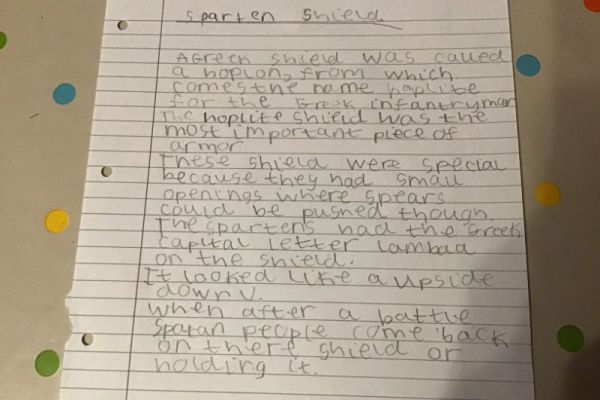 Sparten Shield
A Greek shield was called
a hoplon, from which
comes the name hoplite
for the Greek infantryman
The hoplite shield was the
most important piece of
armor
These shield were special
because they had small
openings where spears
could be pushed though.
The spartens had the Greek
capital letter lambda
on the shield.
It looked like a upside
down v.
when after a battle
spatan people come back
on there shield or
holding it.